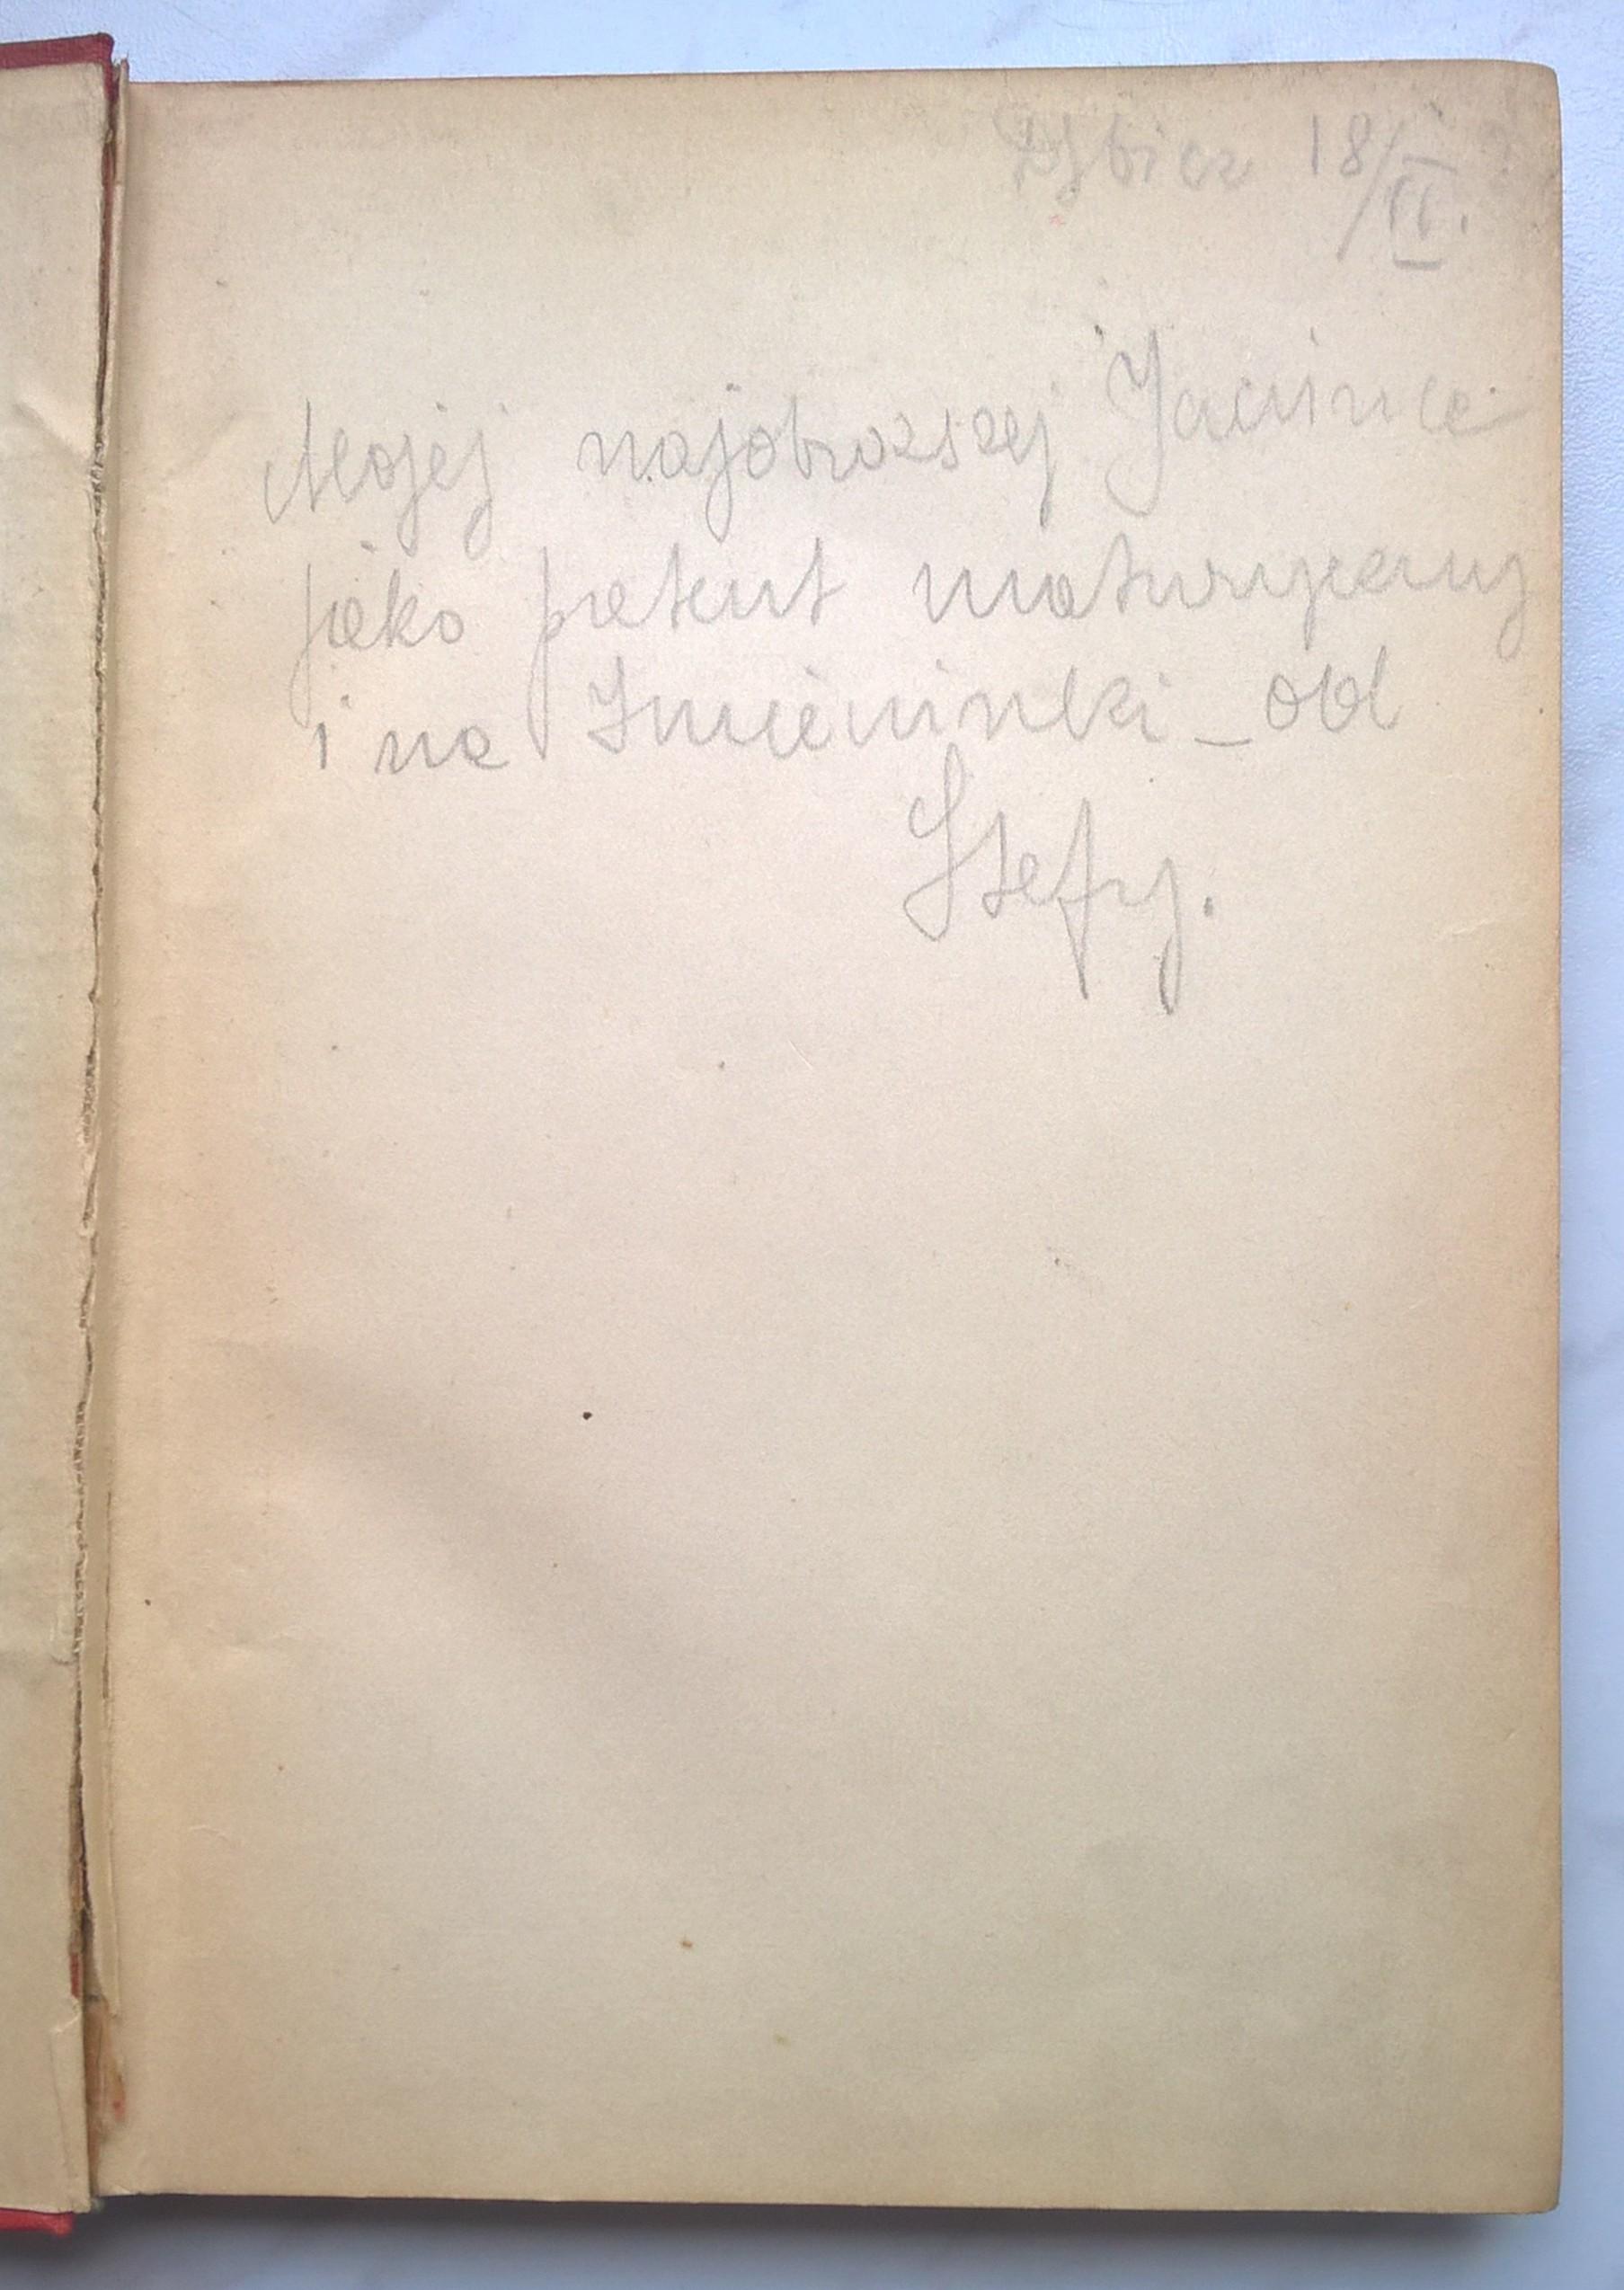 18/II.
Mojej najdroższej Janince
jako patent maturyczny
i na Imieninki _ od
Stefy.